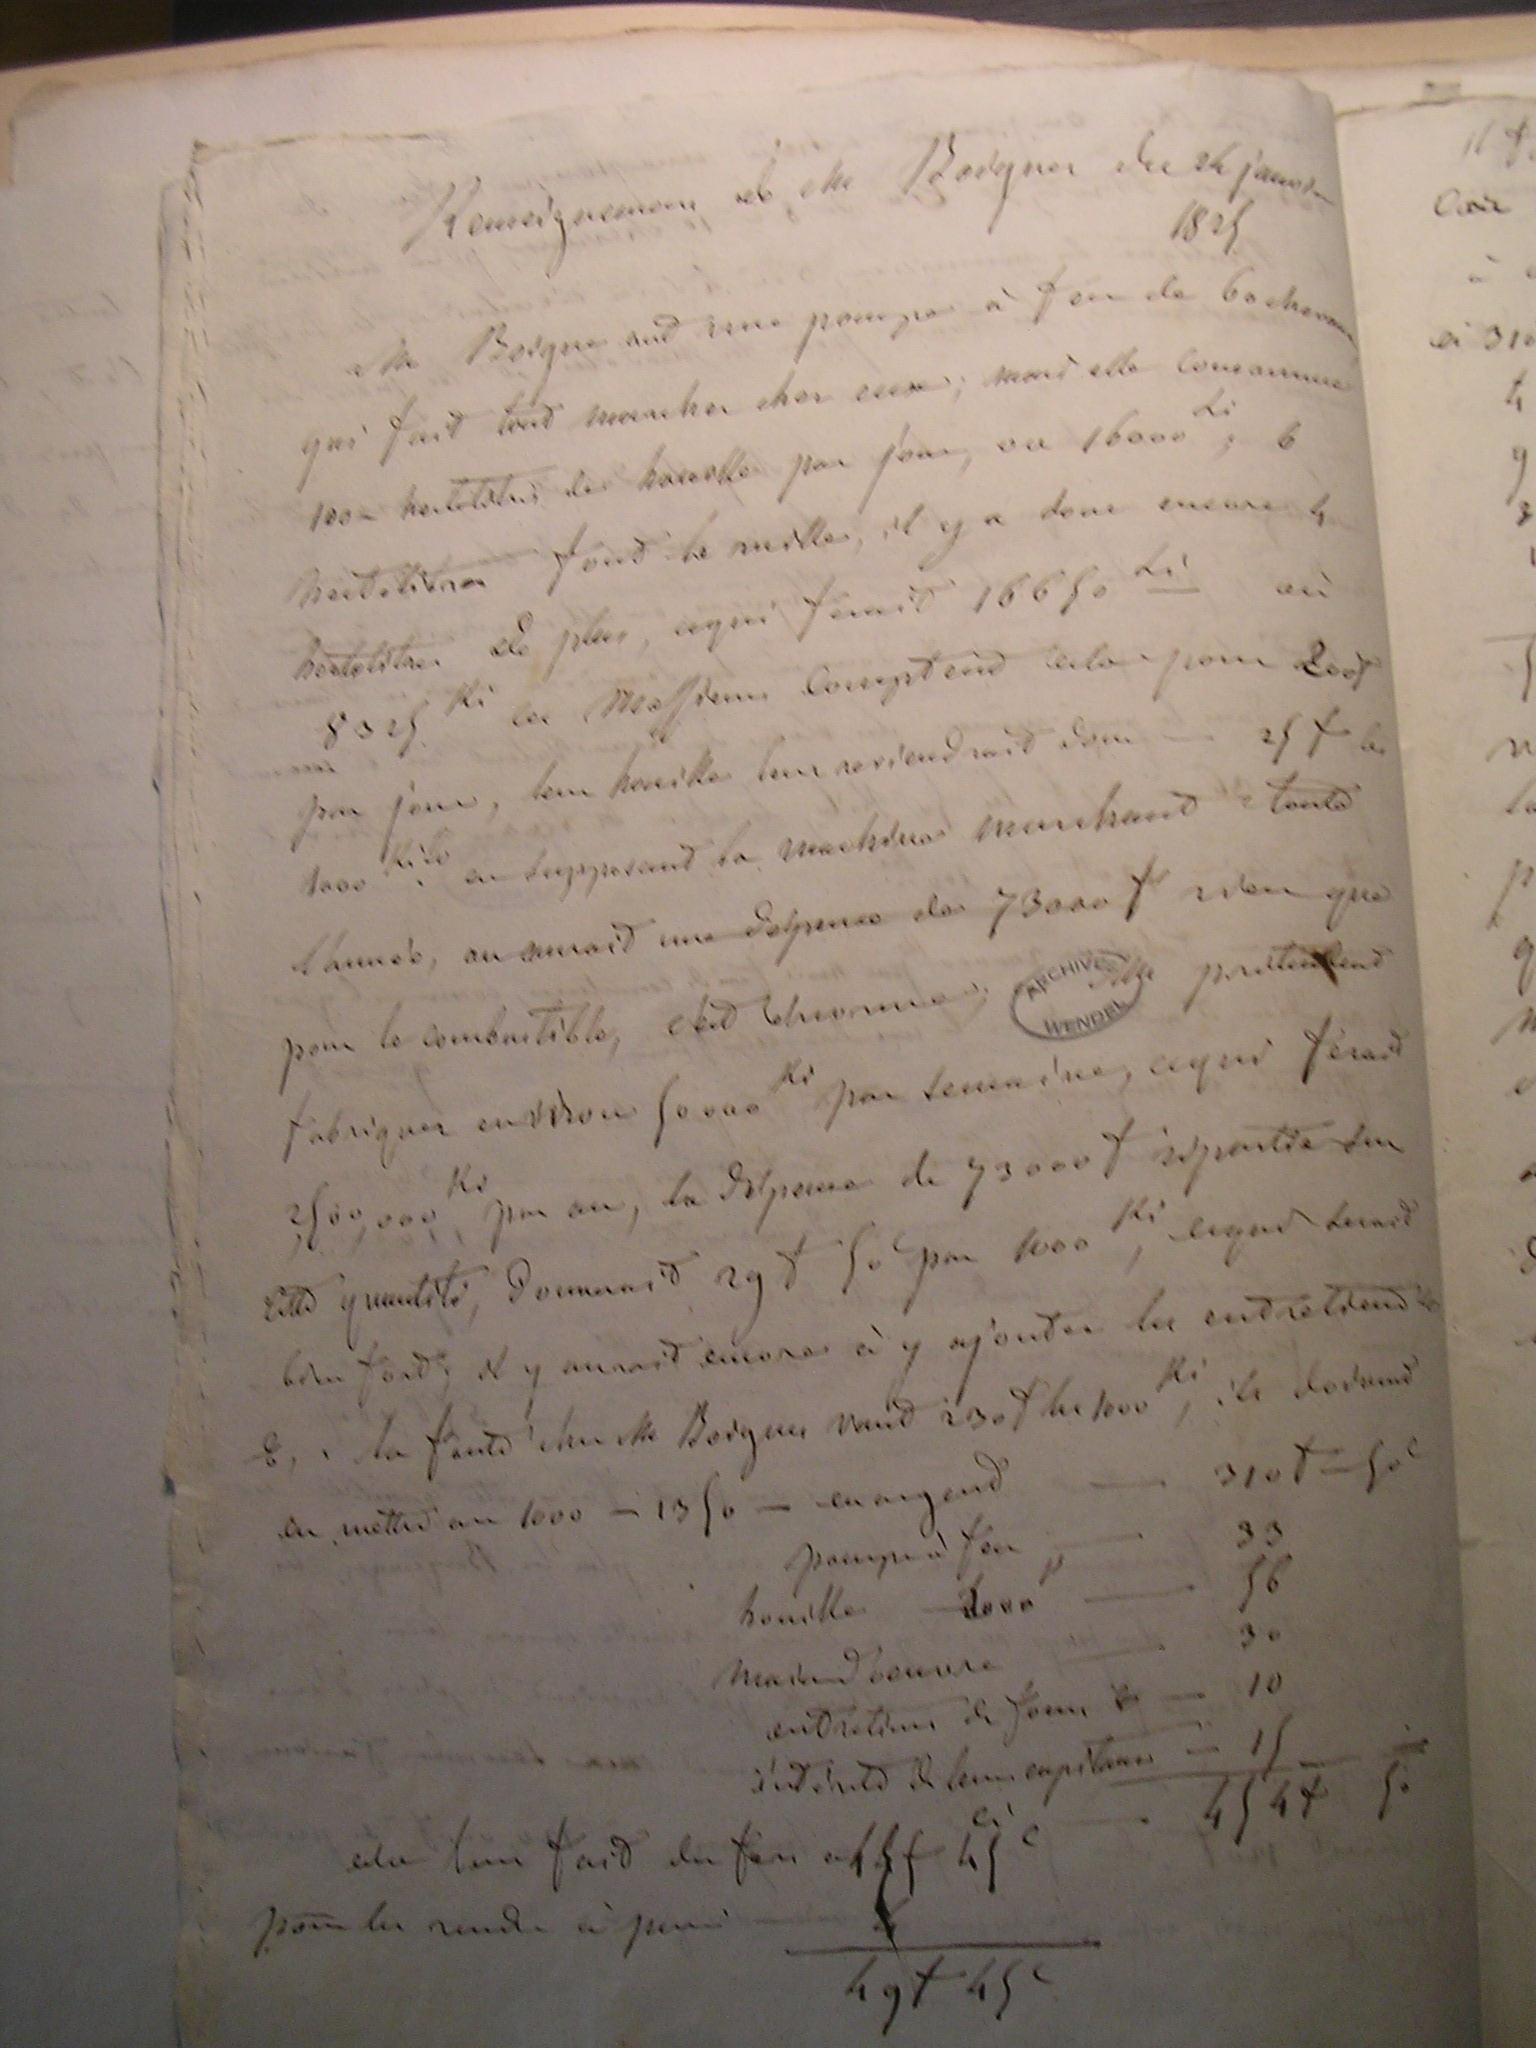 Renseignemens de Mr Boigues du 24 janvier
1825
Mr Boigues ont une pompe à feu de 60 chevaux
qui fait tout marcher chez eux; mais elle consomme
100 hectolitres de houille par jour, ou 16000 Li; 6
hectolitres font le mille, il y a donc encore 4
hectolitres de plus, ce qui ferait 16650 Li ou
8325 Ki ces Messieurs comptent cela pour 200f
par jour, leur houille leur reviendrait donc — 25 f les
1000 Kilo en supposant la machine marchant toute
l'année, on aurait une dépense de 73000 f rien que
pour le combustible, c'est énorme; Ils prétendent
fabriquer environ 50000 Ki par semaine, ce qui ferait
2,500,000 Ki par an, la dépense de 73000 f répartie sur
cette quantité, donnerait 29 f 50 c par 1000 Ki, ce qui serait
bien fort; il y aurait encore à y ajouter les entretiens
&. la fonte chez Mr Boigues vaut 230 f les 1000 Ki, ils doivent
en mettre au 1000 — 1350 — en argent — 310 f — 50 c
pompe à feu — 33
houille 2000 — 56
main d'oeuvre — 30
entretiens de fours & — 10
intérêts de leurs capitaux — 15
ci — 454 f 50
cela leur fait du fer à 45 f 45 c
pour les rendre à paris 4
49 f 45 c
ARCHIVES
WENDEL
à
4
9